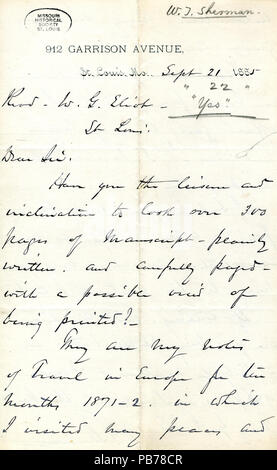 MISSOURI
HISTORICAL
SOCIETY
ST. LOUIS
W. T. Sherman.
912 GARRISON AVENUE,
St. Louis, Mo. Sept 21 1885
" 22 "
"Yes"
Revd - W. G. Eliot -
St Louis.
Dear Sir:
Have you the leisure and
inclination to look over 300
pages of Manuscript - plainly
written, and carefully paged -
with a possible view of
being printed? -
They are my notes
of Travel in Europe for ten
months 1871-2. in which
I visited many places and
alamy
PB78CR